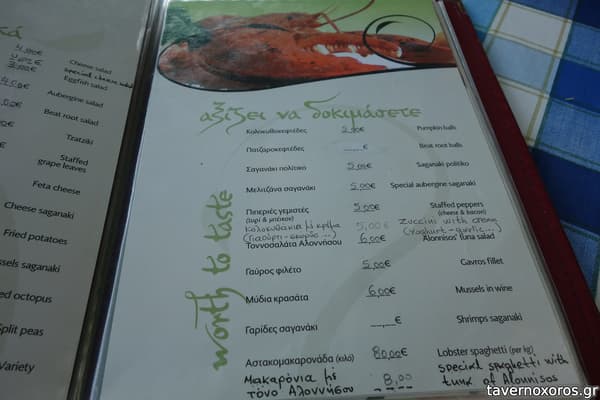 κά
4,00€
Cheese salad
special cheese salad
3,00€
Eggfish salad
Aubergine salad
Beat root salad
Tzatziki
Staffed
grape leaves
Feta cheese
Cheese saganaki
Fried potatoes
ssels saganaki
ed octopus
Split peas
Variety
αξίζει να δοκιμάσετε
worth to taste
Κολοκυθοκεφτέδες 5,00€ Pumpkin balls
Πατζαροκεφτέδες ___,__€ Beat root balls
Σαγανάκι πολίτικο 5,00€ Saganaki politiko
Μελιτζάνα σαγανάκι 5,00€ Special aubergine saganaki
Πιπεριές γεμιστές 5,00€ Staffed peppers
(τυρί & μπέικον) (cheese & bacon)
Κολοκυθάκια με κρέμα 5,00€ Zuccini with cream
(Γιαούρτι-σκόρδο ...) (Yoghurt-garlic...)
Τοννοσαλάτα Αλοννήσου 6,00€ Alonnisos' tuna salad
Γαύρος φιλέτο 5,00€ Gavros fillet
Μύδια κρασάτα 6,00€ Mussels in wine
Γαρίδες σαγανάκι ___,__€ Shrimps saganaki
Αστακομακαρονάδα (κιλό) 80,00€ Lobster spaghetti (per kg)
Μακαρόνια με 8,00 special spaghetti with
τόνο Αλοννήσου tuna of Alonnisos
tavernoxoros.gr